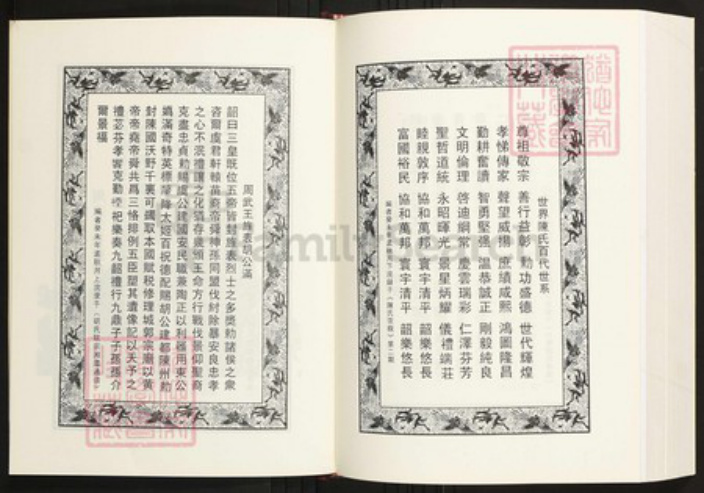 世界陳氏百代世系
尊祖敬宗 善行益彰 勳功盛德 世代輝煌
孝悌傳家 聲望威揚 庶績咸熙 鴻圖隆昌
勤耕奮讀 智勇堅强 溫恭誠正 剛毅純良
文明倫理 啓迪綱常 慶雲瑞彩 仁澤芬芳
聖哲道統 永昭暉光 景星炳耀 儀禮端莊
睦親敦序 協和萬邦 寰宇清平 韶樂悠長
富國裕民 協和萬邦 寰宇清平 韶樂悠長
周武王旌表胡公滿
韶曰三皇既位五帝皆封旌表烈士之多獎勅諸侯之衆
咨爾虞君軒轅苗裔帝舜神孫同盟伐紂除暴安良忠孝
之心不泯禮讓之化猶存歲頒王命方行戰伐景仰聖裔
克盡忠貞勅賜虞公建國安民職兼陶正以利器用東公
媯滿奇特英標降太姬百祝德配賜胡公建都陳州勅
封陳國沃野千裏可鐲取本國賦税修理城郭宗廟以黄
帝帝堯帝舜共爲三恪排例五臣塑其遺像記以天予之
禮苾芬孝享克勤祀樂奏九韶禮行九鼎子子孫孫介
爾景福